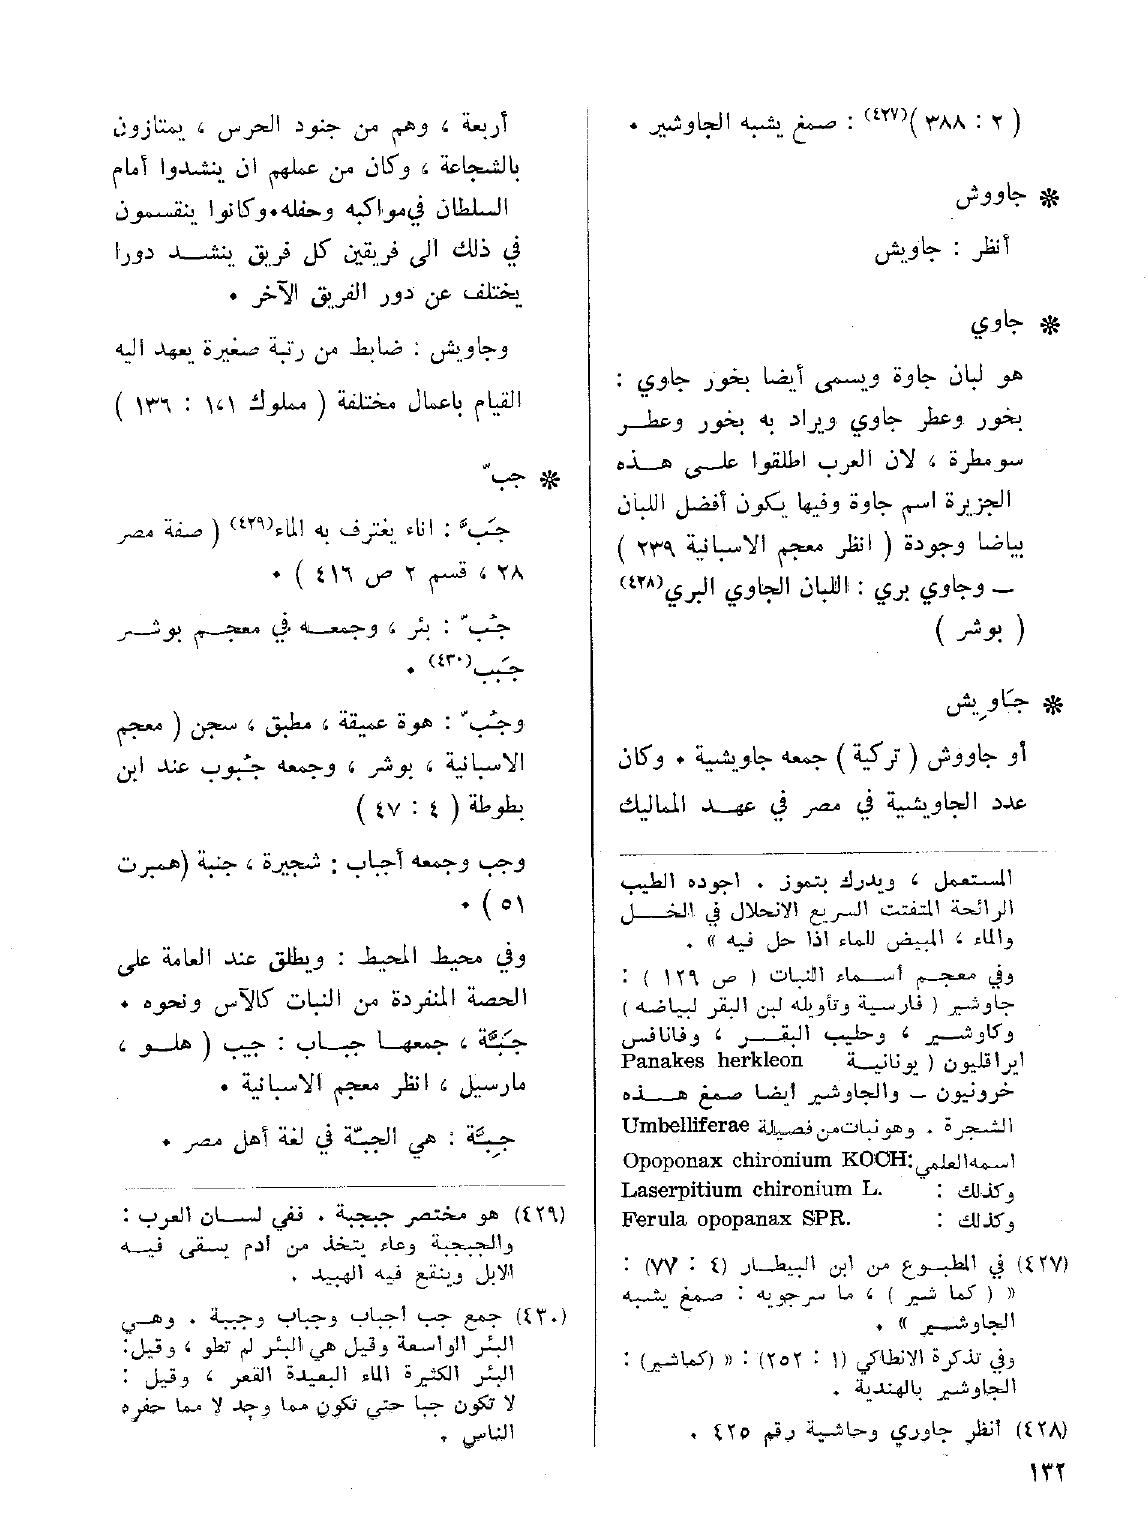 ( ٢ : ٣٨٨ )(٤٢٧) : صمغ يشبه الجاوشير ٠
❋ جاووش
أنظر : جاويش
❋ جاوي
هو لبان جاوة ويسمى أيضا بخور جاوي :
بخور وعطر جاوي ويراد به بخور وعطـــر
سومطرة ، لان العرب اطلقوا علـــى هـــذه
الجزيرة اسم جاوة وفيها يكون أفضل اللبان
بياضا وجودة ( انظر معجم الاسبانية ٢٣٩ )
ــ وجاوي بري : اللبان الجاوي البري(٤٢٨)
( بوشر )
❋ جَاوِيش
أو جاووش ( تركية ) جمعه جاويشية ٠ وكان
عدد الجاويشية في مصر في عهـــد المماليك
المستعمل ، ويدرك بتموز . اجوده الطيب
الرائحة المتفتت السريع الانحلال في الخـــل
والماء ، المبيض للماء اذا حل فيه » .
وفي معجــم أســماء النبات ( ص ١٢٩ ) :
جاوشير ( فارسية وتأويله لبن البقر لبياضه )
وكاوشــير ، وحليب البقــر ، وفانافس
ايراقليون ( يونانيـــة Panakes herkleon
خرونيون ــ والجاوشير أيضا صمغ هـــذه
الشجرة . وهو نبات من فصيلة Umbelliferae
اسمه العلمي: Opoponax chironium KOCH
وكذلك : Laserpitium chironium L.
وكذلك : Ferula opopanax SPR.
(٤٢٧) في المطبــوع من ابن البيطــار (٤ : ٧٧) :
« ( كما شير ) ، ما سرجويه : صمغ يشبه
الجاوشــير » ٠
وفي تذكرة الانطاكي (١ : ٢٥٢) : « (كماشير) :
الجاوشير بالهندية .
(٤٢٨) أنظر جاوري وحاشية رقم ٤٢٥ .
١٣٢
أربعة ، وهم من جنود الحرس ، يمتازون
بالشجاعة ، وكان من عملهم ان ينشدوا أمام
السلطان في مواكبه وحفله٠ وكانوا ينقسمون
في ذلك الى فريقين كل فريق ينشـــد دورا
يختلف عن دور الفريق الآخر ٠
وجاويش : ضابط من رتبة صغيرة يعهد اليه
القيام باعمال مختلفة ( مملوك ١،١ : ١٣٦ )
❋ جبّ
جَبّ : اناء يغترف به الماء(٤٢٩) ( صفة مصر
٢٨ ، قسم ٢ ص ٤١٦ ) ٠
جُبّ : بئر ، وجمعـــه في معجــم بوشــر
جبَب(٤٣٠) ٠
وجُبّ : هوة عميقة ، مطبق ، سجن ( معجم
الاسبانية ، بوشر ، وجمعه جُبوب عند ابن
بطوطة ( ٤ : ٤٧ )
وجب وجمعه أجباب : شجيرة ، جنبة (همبرت
٥١ ) ٠
وفي محيط المحيط : ويطلق عند العامة على
الحصة المنفردة من النبات كالآس ونحوه ٠
جَبَّة ، جمعهــا جبــاب : جيب ( هلــو ،
مارسيل ، انظر معجم الاسبانية ٠
جِبَّة : هي الجبّة في لغة أهل مصر ٠
(٤٢٩) هو مختصر جبجبة . ففي لســـان العرب :
والجبجبة وعاء يتخذ من أدم يسقى فيـــه
الابل وينقع فيه الهبيد .
(٤٣٠) جمع جب أجباب وجباب وجببة . وهـــي
البئر الواسعة وقيل هي البئر لم تطو ، وقيل:
البئر الكثيرة الماء البعيدة القعر ، وقيل :
لا تكون جبا حتى تكون مما وجد لا مما حفره
الناس .